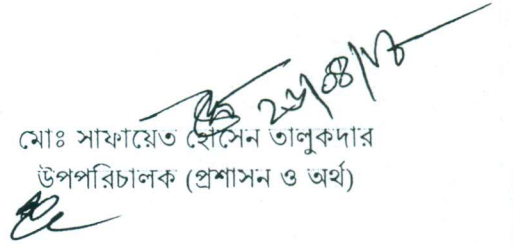 মোঃ সাফায়েত হোসেন তালুকদার
উপপরিচালক (প্রশাসন ও অর্থ)